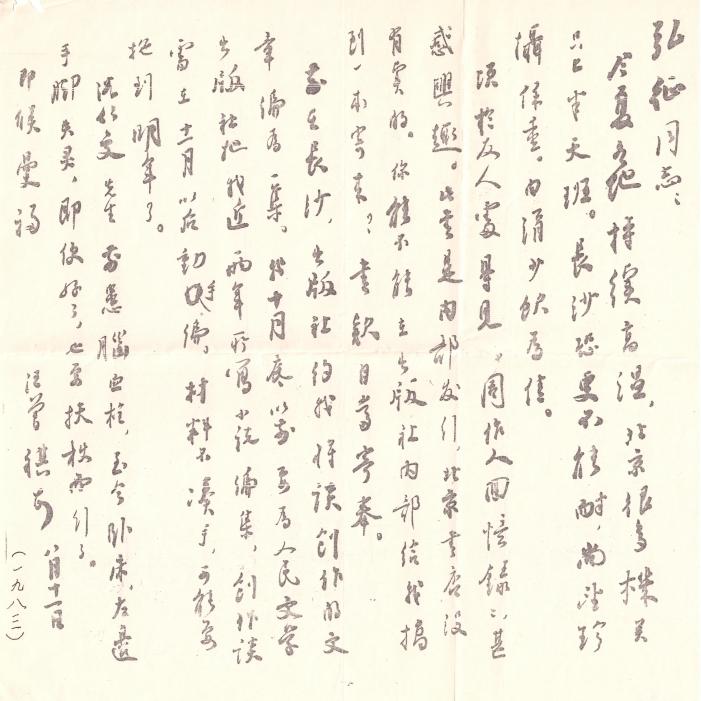 弘征同志：
今夏各地持续高温，北京很多机关
只上半天班。长沙恐更不能耐，尚望珍
摄保重，内消少饮为佳。
顷于友人处得见《周作人回忆录》，甚
感兴趣。此书是内部发行，北京书店没
有卖的。你能不能在出版社内部给我搞
到一本寄来？书款日当寄奉。
我在长沙，出版社约我将谈创作的文
章编为一集。我十月底以前要为人民文学
出版社把我近两年所写小说编集，创作谈
需在十一月以后动手编。材料不凑手，可能要
拖到明年了。
沈从文先生前患脑血栓，至今卧床，左边
手脚失灵，即使好了，也要扶杖而行了。
即候曼福
汪曾祺
八月十一日
（一九八三）